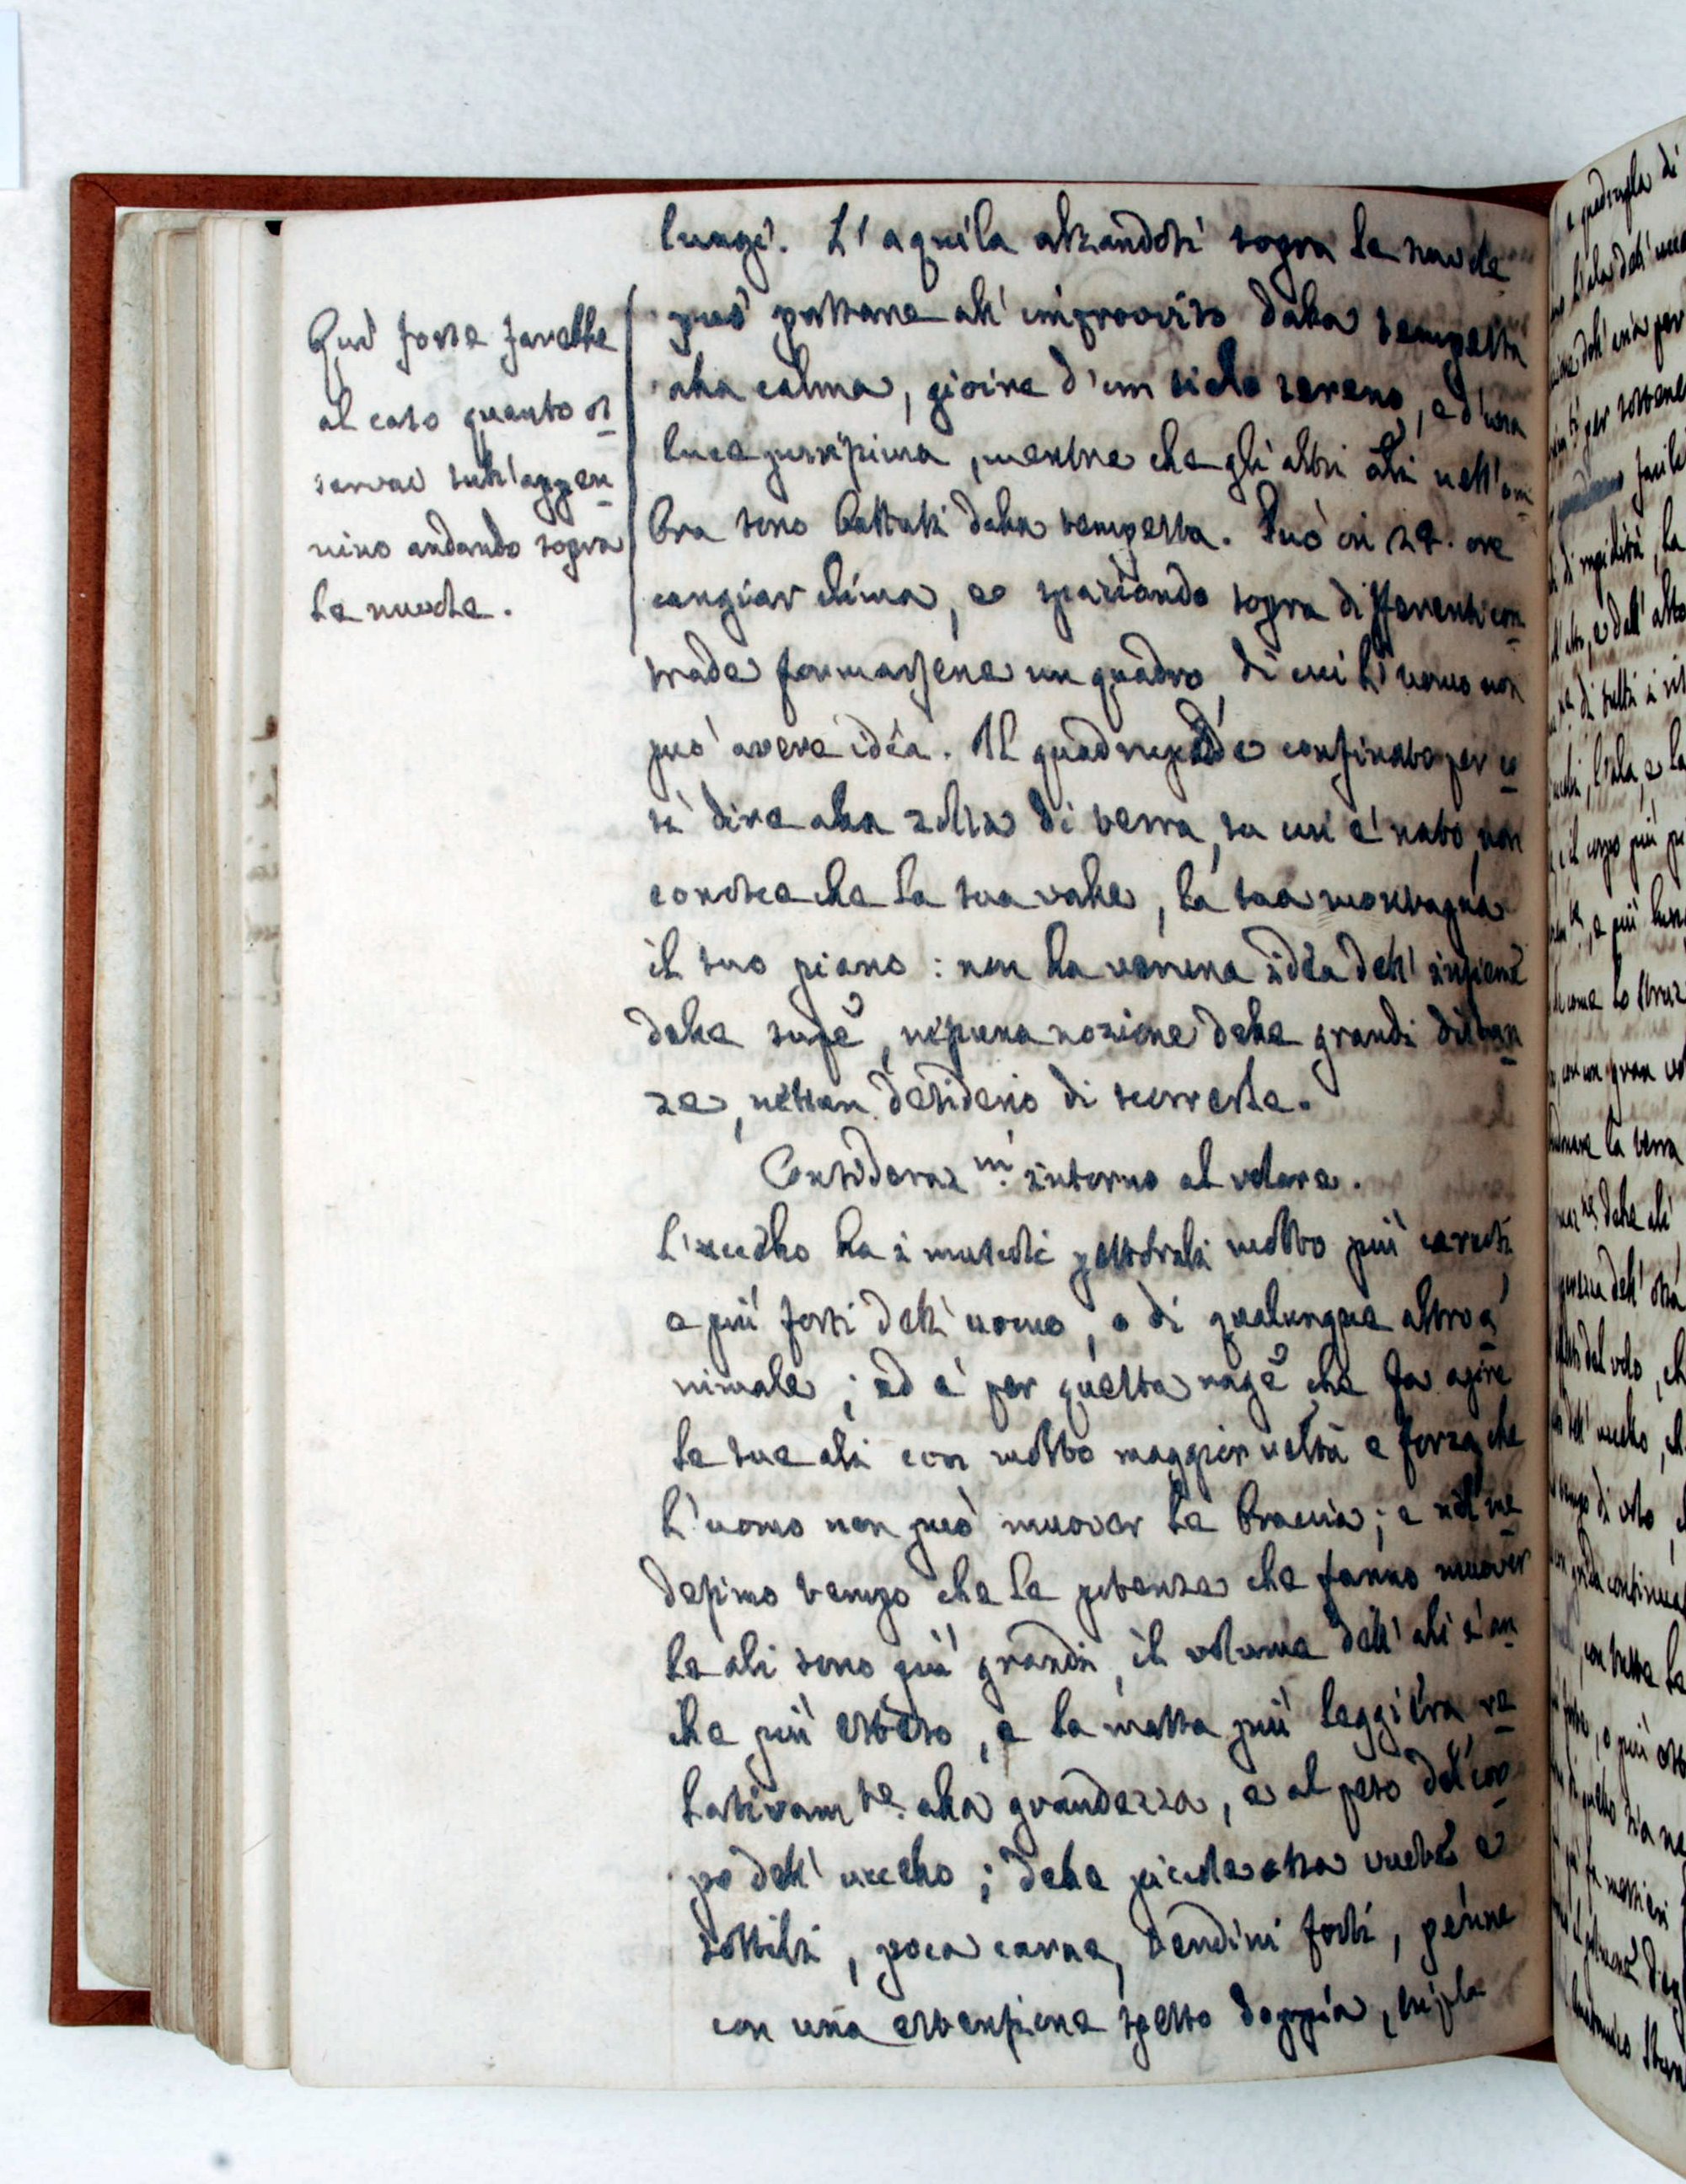 lungi. L'aquila alzandosi sopra le nuvole
può passare all'improovviso dalla tempesta
alla calma, gioire d'un cielo sereno, e d'una
luce purissima, mentre che gli altri a͞li nell'om
bra sono battuti dalla tempesta. Può in 24. ore
cangiar clima, e spaziando sopra differenti con
trade formarsene un quadro, di cui l'uomo non
può avere idéa. Il quadrupede confinato per co
sì dire alla zolla di terra, su cui è nato, non
conosce che la sua valle, la sua montagna
il suo piano: non ha veruna idéa dell'insieme
delle supe͞, nissuna nozione delle grandi distan
ze, nessun desiderio di scorrerle.
Consideraz.ni intorno al volare.
L'uccello ha i muscoli pettorali molto più carnosi
e più forti dell'uomo, o di qualunque altro a
nimale; ed è per questa rage͞ che fa agire
le sue ali con molto maggior velta͞ e forza, che
l'uomo non può muover le braccia; e nel me
desimo tempo che le potenze che fanno muover
le ali sono più grandi, il volume dell'ali è an
che più esteso, e la massa più leggiéra, re
lativam.te alla grandezza, e al peso del cor
po dell'uccello; delle piccole ossa vuote e
sottili, poca carne, tendini forti, penne
con una estensione spesso doppia, tripla
Quì forse sarebbe
al caso quanto os
servai sull'appen
nino andando sopra
le nuvole.